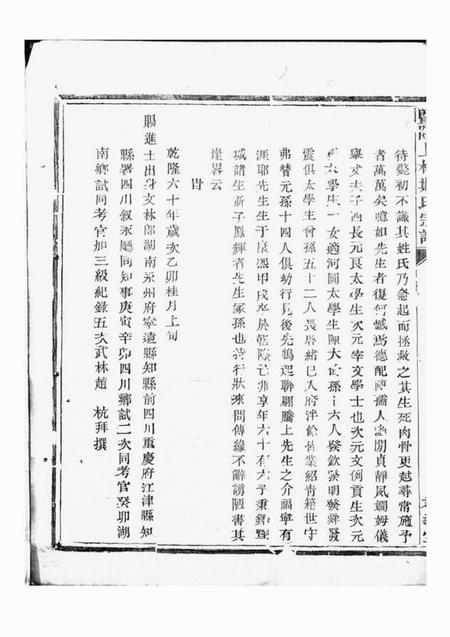 待斃初不識其姓氏乃惫起而拯救之其生死肉骨更越尋常施予
者萬萬矣噫如先生者復何憾焉德配陳孺人幽閒貞靜夙嫻姆儀
舉丈夫子四長元良太學生次元宰文學士也次元文例貢生次元
太學生一女適河圖太學生陳大 孫十六人發欽發明發舜發
震俱太學生曾孫五十二人長啓緒已入府泮餘皆業紹青箱世守
弗替元孫十四人俱幼行見後先鳴起聯翩騰上先生之介福寧有
涯耶先生生于康熙甲戌卒於乾隆己 享年六十有六予秉鐸暨
城諸生新子鳳輝者先生冢孫也待行狀來問傳緣不辭謭陋書其
崖畧云
旹
乾隆六十年歲次乙卯桂月上旬
賜進士出身文林郎湖南永州府寧遠縣知縣前四川重慶府江津縣知
縣署四川叙永廳同知事庚寅辛卯四川鄉試二次同考官癸卯湖
南鄉試同考官加三級紀錄五次武林趙 杭拜撰